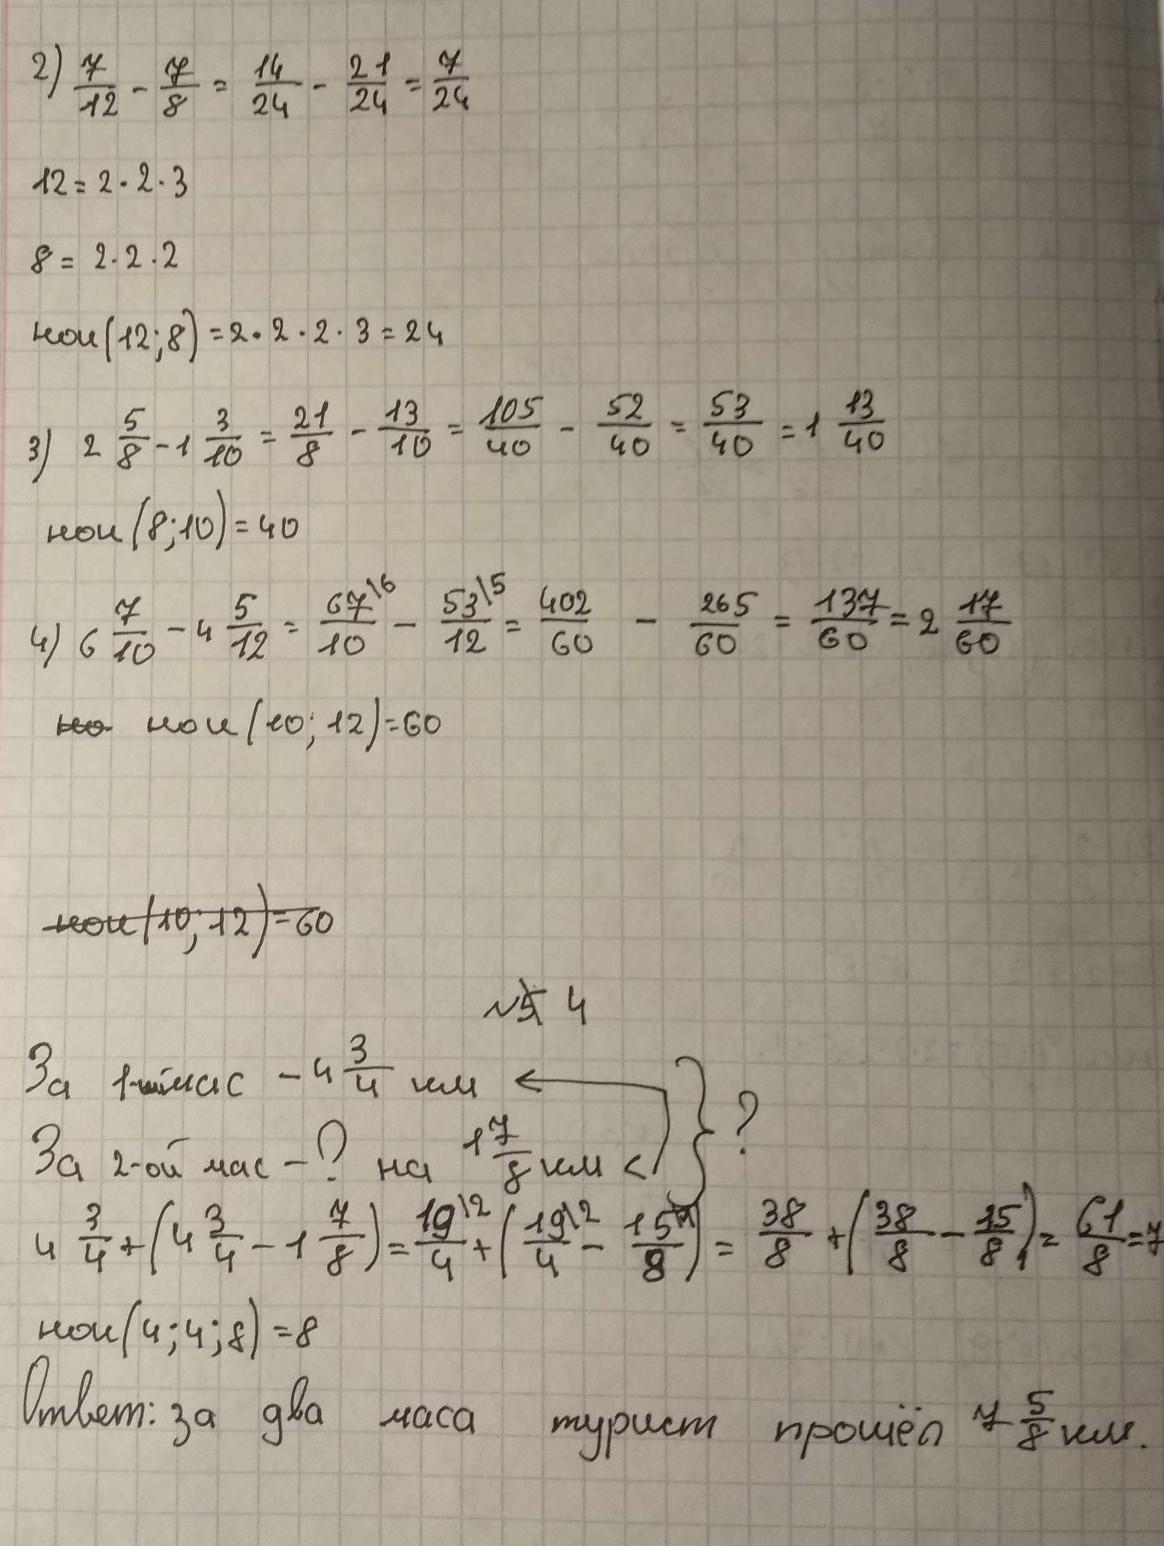 2) 7/12 - 7/8 = 14/24 - 21/24 = 7/24
12 = 2·2·3
8 = 2·2·2
нок(12;8) = 2·2·2·3 = 24
3) 2 5/8 - 1 3/10 = 21/8 - 13/10 = 105/40 - 52/40 = 53/40 = 1 13/40
нок(8;10) = 40
4) 6 7/10 - 4 5/12 = 67\6/10 - 53\5/12 = 402/60 - 265/60 = 137/60 = 2 17/60
но нок(10;12)=60
нок(10;12)=60
№5 4
За 1-ый час - 4 3/4 км
За 2-ой час - ? на 1 7/8 км < } ?
4 3/4 + (4 3/4 - 1 7/8) = 19\2/4 + (19\2/4 - 15/8) = 38/8 + (38/8 - 15/8) = 61/8 = 7
нок(4;4;8) = 8
Ответ: за два часа турист прошёл 7 5/8 км.